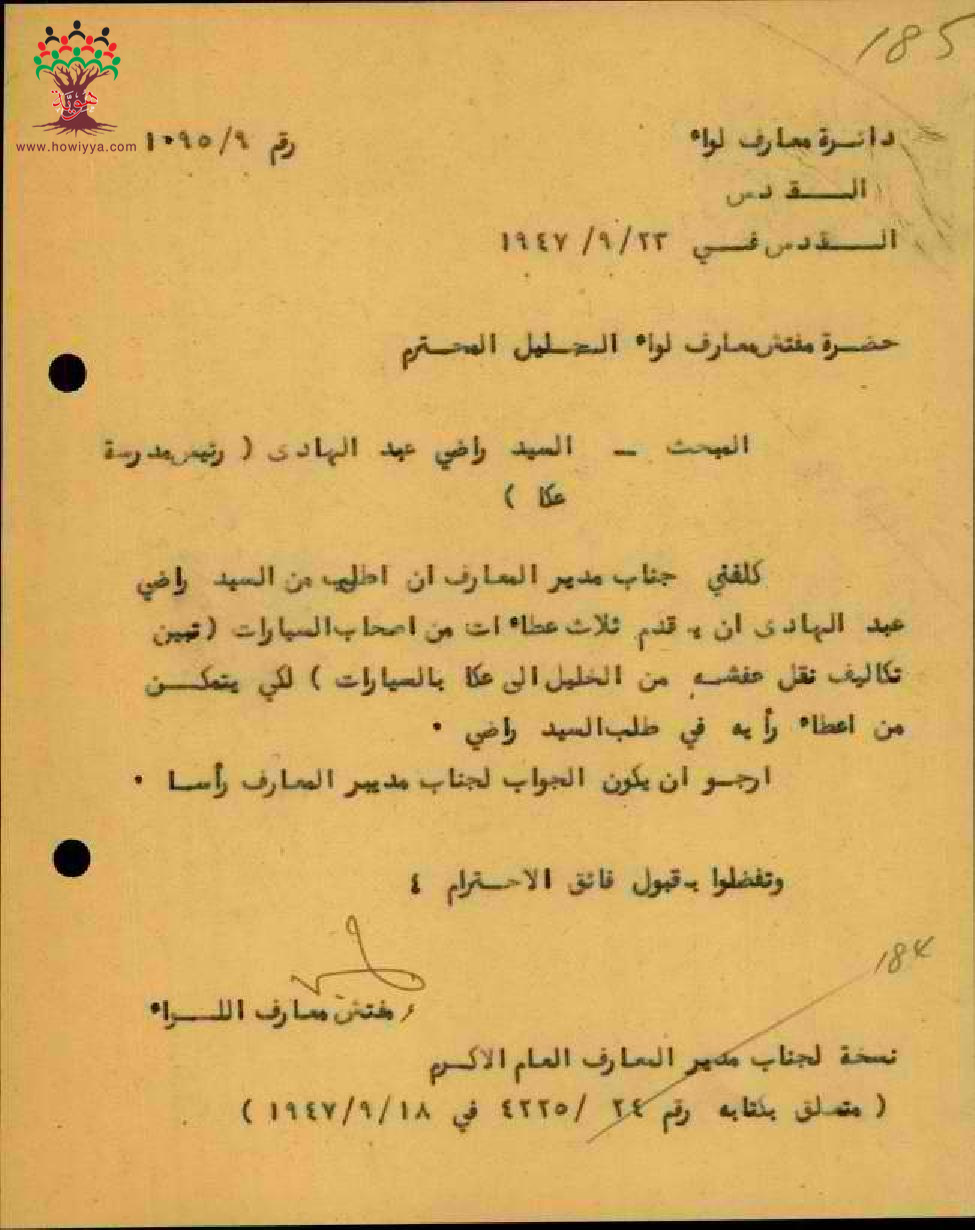 185
هوية
www.howiyya.com
دائرة معارف لواء
رقم ١٠٩٥/٩
القدس
القدس في ٢٣/ ٩/ ١٩٤٧
حضرة مفتش معارف لواء الخليل المحترم
المبحث – السيد راضي عبد الهادى ( رئيس مدرسة
عكا )
كلفني جناب مدير المعارف ان اطلب من السيد راضي
عبد الهادى ان يقدم ثلاث عطاءات من اصحاب السيارات ( تبين
تكاليف نقل عفشه من الخليل الى عكا بالسيارات ) لكي يتمكن
من اعطاء رأيه في طلب السيد راضي ٠
ارجو ان يكون الجواب لجناب مدير المعارف رأسا ٠
وتفضلوا بقبول فائق الاحترام ٤
184
مفتش معارف اللواء
نسخة لجناب مدير المعارف العام الاكرم
( متعلق بكتابه رقم ٢٤ /٤٢٢٥ في ١٩٤٧/٩/١٨ )